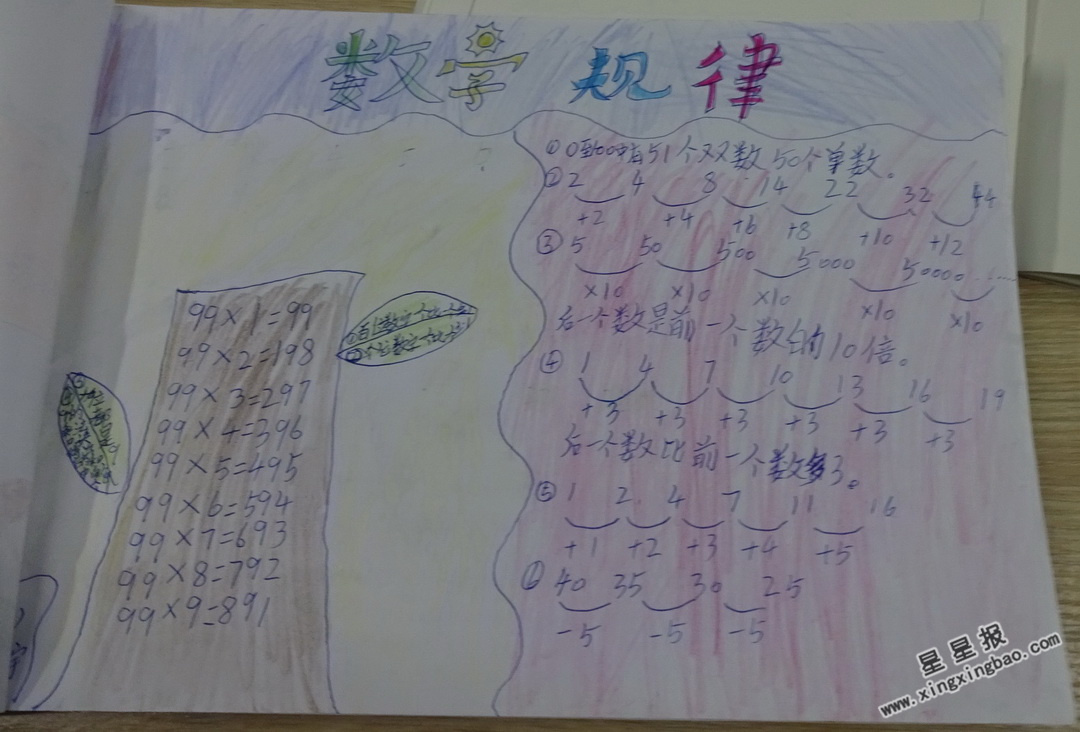 数字 规律
99×1=99
99×2=198
99×3=297
99×4=396
99×5=495
99×6=594
99×7=693
99×8=792
99×9=891
①0到100中有51个双数50个单数。
② 2 4 8 14 22 32 44
+2 +4 +6 +8 +10 +12
③ 5 50 500 5000 50000……
×10 ×10 ×10 ×10 ×10
后一个数是前一个数的10倍。
④ 1 4 7 10 13 16 19
+3 +3 +3 +3 +3 +3
后一个数比前一个数多3。
⑤ 1 2 4 7 11 16
+1 +2 +3 +4 +5
⑥ 40 35 30 25
-5 -5 -5
字
星星报
www.xingxingbao.com